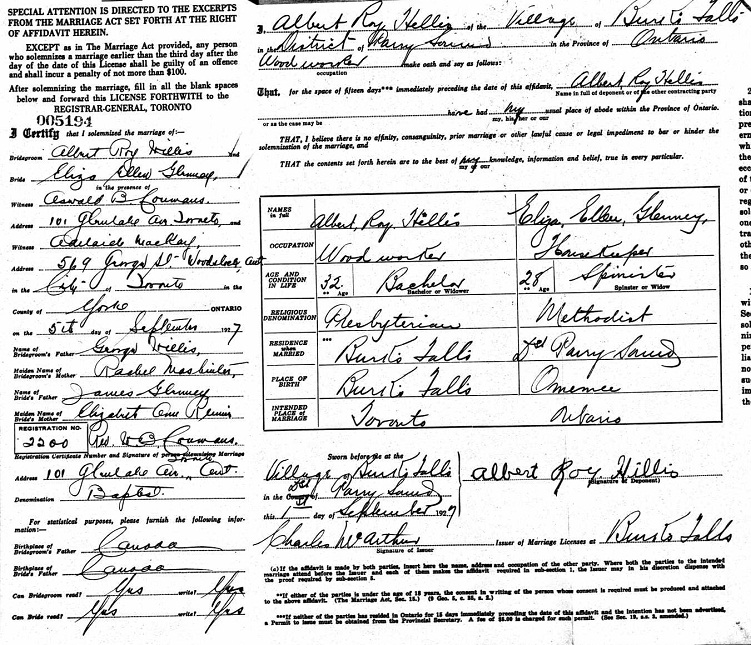 SPECIAL ATTENTION IS DIRECTED TO THE EXCERPTS
FROM THE MARRIAGE ACT SET FORTH AT THE RIGHT
OF AFFIDAVIT HEREIN.
EXCEPT as in The Marriage Act provided, any person
who solemnizes a marriage earlier than the third day after the
day of the date of this License shall be guilty of an offence
and shall incur a penalty of not more than $100.
After solemnizing the marriage, fill in all the blank spaces
below and forward this LICENSE FORTHWITH to the
REGISTRAR-GENERAL, TORONTO
005194
I Certify that I solemnized the marriage of:
Bridegroom Albert Roy Hillis and
Bride Eliza Ellen Glenney,
in the presence of
Witness Oswald B Coumans.
Address 101 Glenlake Av. Toronto, and
Witness Adelaide MacKay,
Address 569 George St- Woodstock, Ont
in the City of Toronto in the
County of Yorke ONTARIO
on the 5th day of September 1927
Name of Bridegroom's Father George Hillis,
Maiden Name of Bridegroom's Mother Rachel
Name of Bride's Father James Glenney
Maiden Name of Bride's Mother Elizabeth Ann
REGISTRATION NO.
2200 Rev. W. Coumans.
Registration Certificate Number and Signature of person solemnizing Marriage
Address 101 Glenlake Av., Toronto Ont.
Denomination Baptist.
For statistical purposes, please furnish the following information:—
Birthplace of Bridegroom's Father Canada
Birthplace of Bride's Father Canada
Can Bridegroom read? Yes write? Yes
Can Bride read? Yes write? Yes
I, Albert Roy Hillis of the Village of Burk's Falls
in the District of Parry Sound in the Province of Ontario
Wood worker make oath and say as follows:
occupation
That, for the space of fifteen days*** immediately preceding the date of this affidavit, Albert Roy Hillis
Name in full of deponent or of the other contracting party
have had my usual place of abode within the Province of Ontario.
or as the case may be my, his, her or our
THAT, I believe there is no affinity, consanguinity, prior marriage or other lawful cause or legal impediment to bar or hinder the
solemnization of the marriage, and
THAT the contents set forth herein are to the best of my knowledge, information and belief, true in every particular.
my or our
NAMES in full Albert Roy Hillis Eliza, Ellen, Glenney,
OCCUPATION Wood worker Housekeeper
AGE AND CONDITION IN LIFE 32 Bachelor 28 Spinister
** Age Bachelor or Widower ** Age Spinster or Widow
RELIGIOUS DENOMINATION Presbyterian Methodist
RESIDENCE when MARRIED *** Burk's Falls Dst Parry Sound
PLACE OF BIRTH Burk's Falls Omemee
INTENDED PLACE OF MARRIAGE Toronto Ontario
Sworn before me at the
Village of Burk's Falls
in the County of Dst Parry Sound
this 1st day of September 1927
Albert Roy Hillis
(Signature of Deponent)
Charles McArthur Issuer of Marriage Licenses at Burk's Falls
Signature of Issuer
(a) If the affidavit is made by both parties, insert here the name, address and occupation of the other party. Where both the parties to the intended
marriage attend before the Issuer and each of them makes the affidavit required in sub-section 1, the Issuer may in his discretion dispense with
the proof required by sub-section 3.
**If either of the parties is under the age of 18 years, the consent in writing of the person whose consent is required must be produced and attached
to the above affidavit. (The Marriage Act, Sec. 15.)
***If neither of the parties has resided in Ontario for 15 days immediately preceding the date of this affidavit and the intention has not been advertised,
a Permit to issue must be obtained from the Provincial Secretary. A fee of $5.00 is charged for each permit.